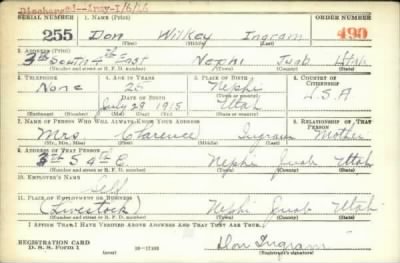 Discharged--Army-1/6/46
SERIAL NUMBER 1. NAME (Print) ORDER NUMBER
255 Don Wilkey Ingram 490
(First) (Middle) (Last)
2. ADDRESS (Print)
3rd South 4th East Nephi Juab Utah
(Number and street or R. F. D. number) (Town) (County) (State)
3. TELEPHONE 4. AGE IN YEARS 5. PLACE OF BIRTH 6. COUNTRY OF CITIZENSHIP
None 25 Nephi
DATE OF BIRTH (Town or county)
July 29 1915 Utah U.S.A
(Exchange) (Number) (Mo.) (Day) (Yr.) (State or country)
7. NAME OF PERSON WHO WILL ALWAYS KNOW YOUR ADDRESS 8. RELATIONSHIP OF THAT PERSON
Mrs Clarence Ingram Mother
(Mr., Mrs., Miss) (First) (Middle) (Last)
9. ADDRESS OF THAT PERSON
3rd S 4th E Nephi Juab Utah
(Number and street or R. F. D. number) (Town) (County) (State)
10. EMPLOYER'S NAME
Self
11. PLACE OF EMPLOYMENT OR BUSINESS
(Livestock) Nephi Juab Utah
(Number and street or R. F. D. number) (Town) (County) (State)
I AFFIRM THAT I HAVE VERIFIED ABOVE ANSWERS AND THAT THEY ARE TRUE.
REGISTRATION CARD
D. S. S. Form 1 (over) Don Ingram
(Registrant's signature)